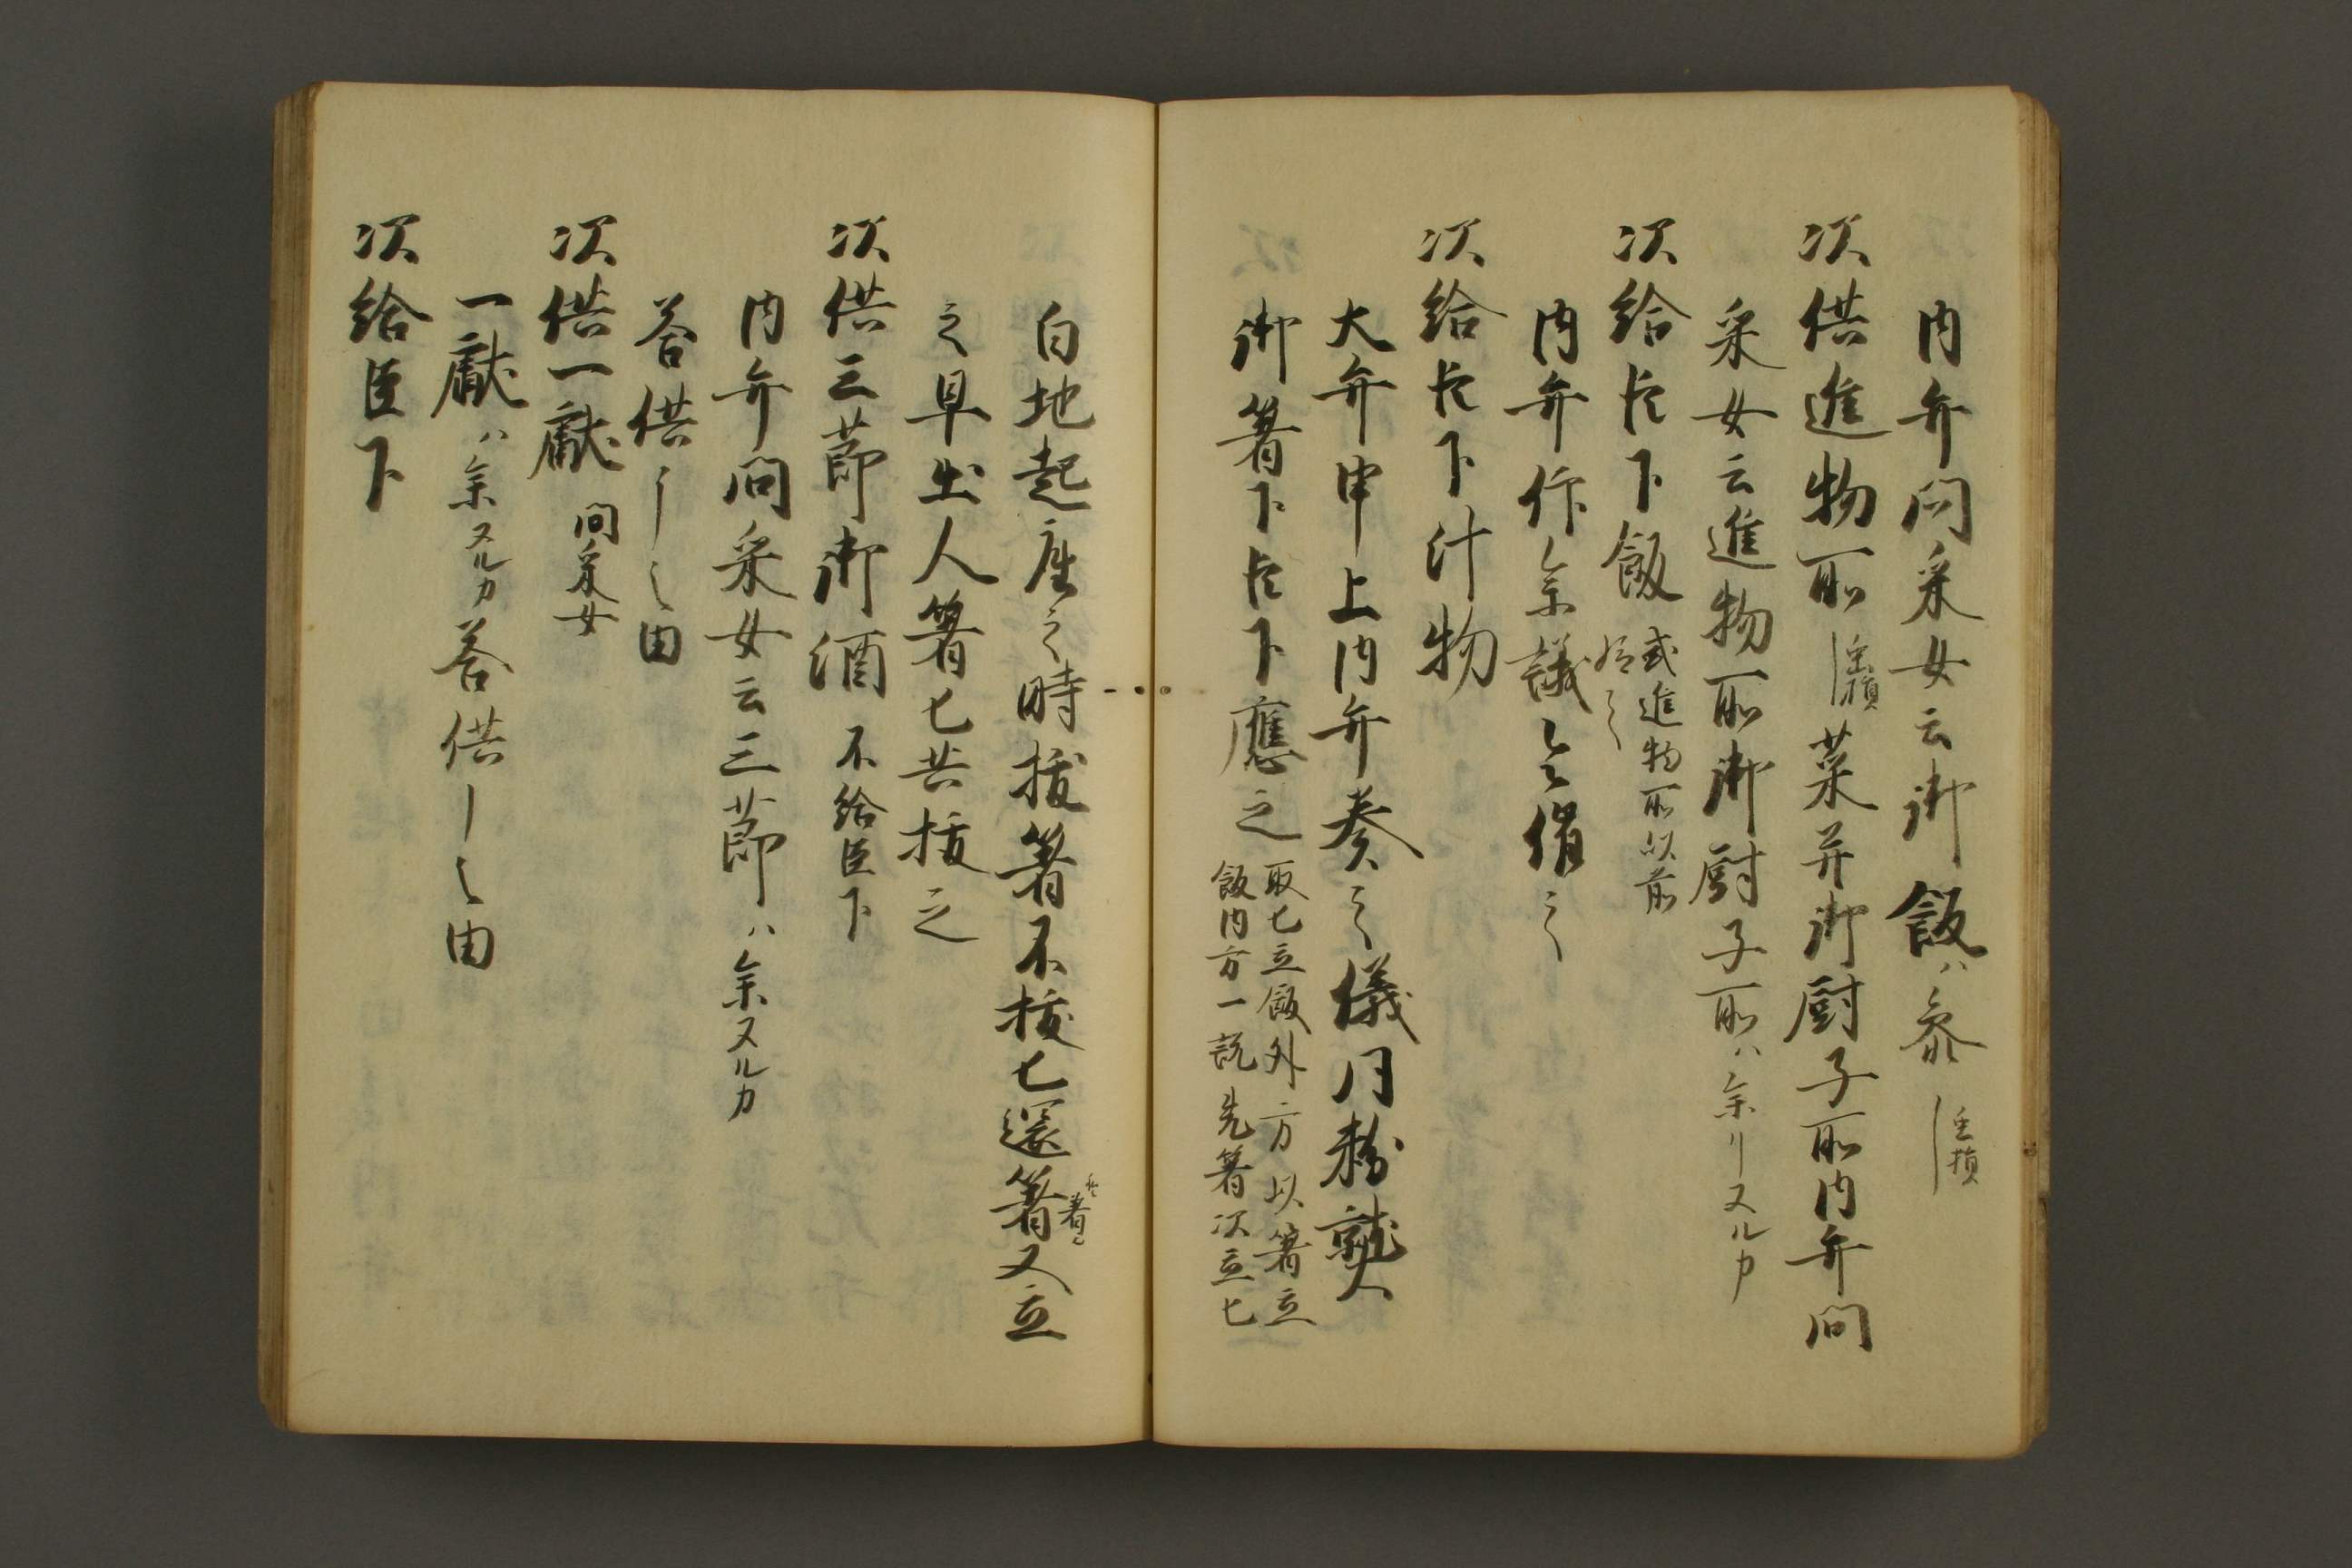 内弁問采女云御飯ハ参
次供進物所菜并御厨子所内弁問
采女云進物所御厨子所ハ参リヌルカ
次給臣下飯
或進物所以前
給之
内弁作参議令催之
次給臣下汁物
大弁申上内弁奏之儀同粉熟
御箸下臣下應之
取匕立飯外方以箸立
飯内方一説先箸次立匕
白地起座之時抜箸不抜匕還着又立
之早出人箸匕共抜之
次供三節御酒 不給臣下
内弁問采女云三節ハ参ヌルカ
答供了之由
次供一献 問采女
一献ハ参ヌルカ答供了之由
次給臣下